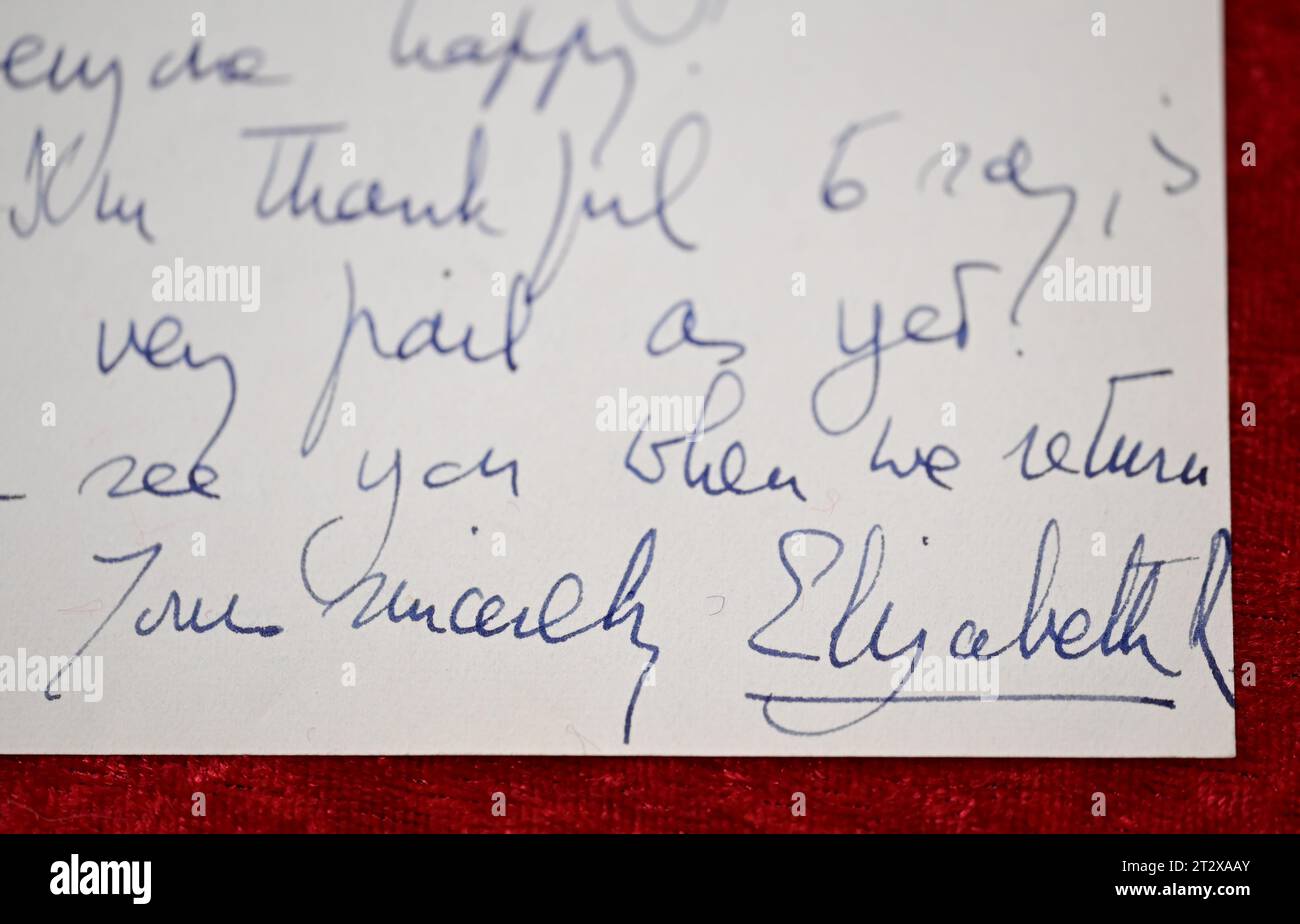 happy.
thankful to say, is
very frail as yet!
see you when we return
Yours sincerely Elizabeth R
alamy
alamy
Image ID: 2T2XAAY
www.alamy.com